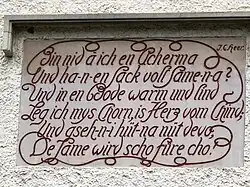 J.C. Heer.
Bin nid ä ich en Acherma
Und ha-n-en Sack voll Same-n-a?
Und in en Bode warm und lind
Leg ich mys Chorn, is Herz vom Chind.
Und aseh-n-i hüt-na nüt devo,
De Same wird scho füre cho!